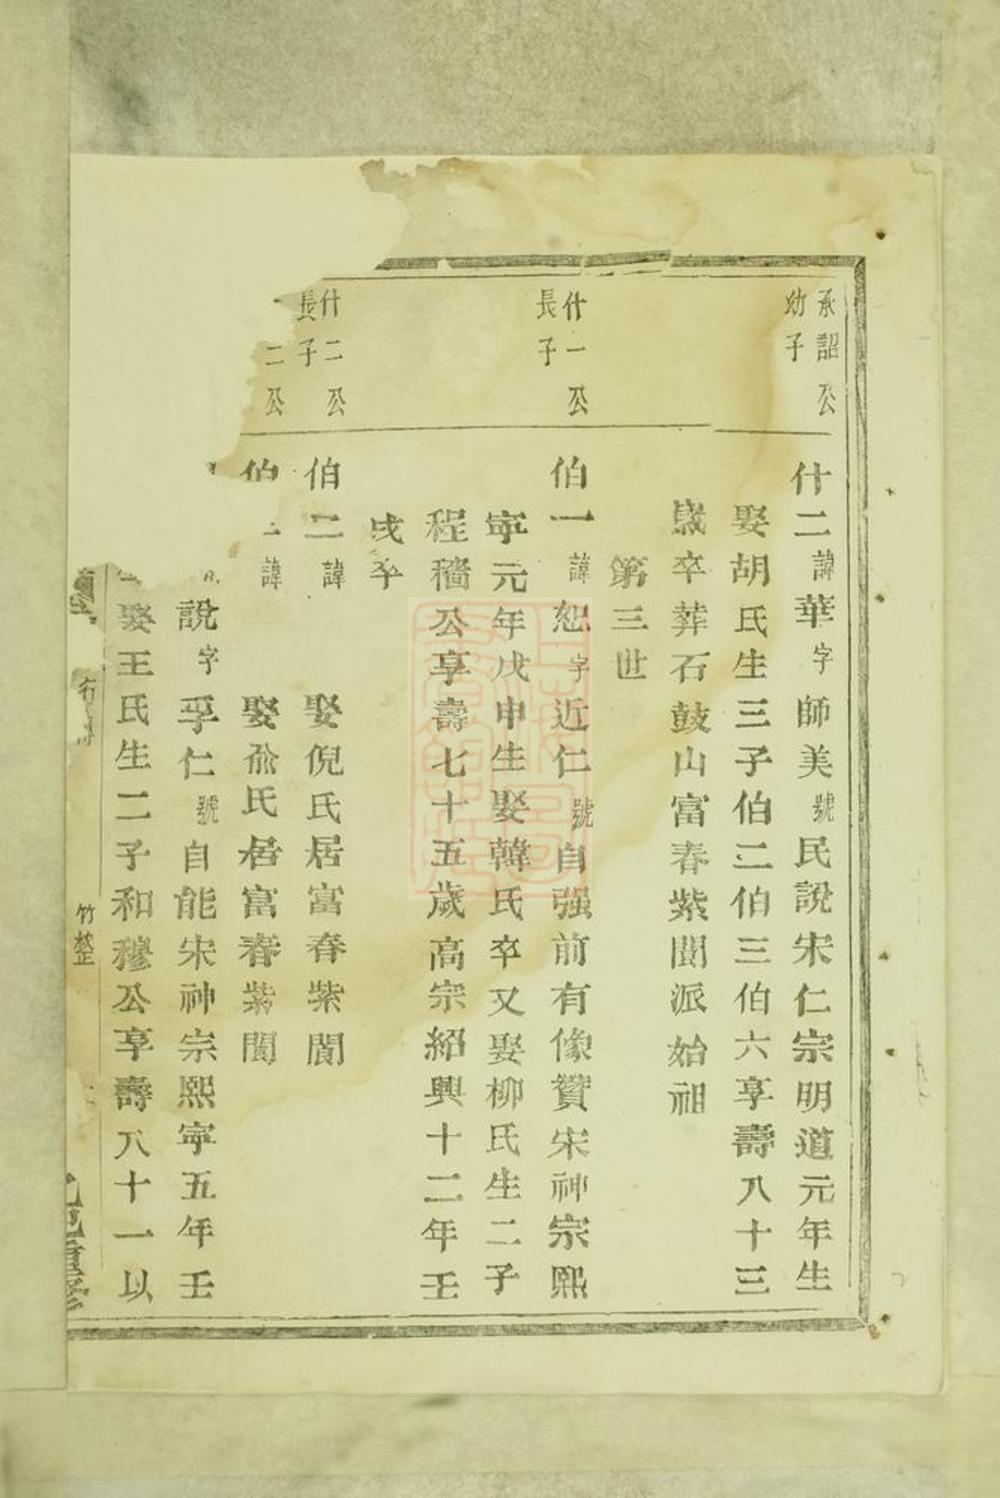 承詔公
幼子
什二諱華字師美號民說宋仁宗明道元年生
娶胡氏生三子伯二伯三伯六享壽八十三
歲卒葬石鼓山富春紫閬派始祖
第三世
什一公
長子
伯一諱恕字近仁號自强前有像贊宋神宗熙
寕元年戊申生娶韓氏卒又娶柳氏生二子
程穡公享壽七十五歲高宗紹興十二年壬
戌卒
什二公
長子
伯二諱 娶倪氏居富春紫閬
二公
伯 諱 娶俞氏居富春紫閬
說字孚仁號自能宋神宗熙寕五年壬
娶王氏生二子和穆公享壽八十一以
竹整
重修